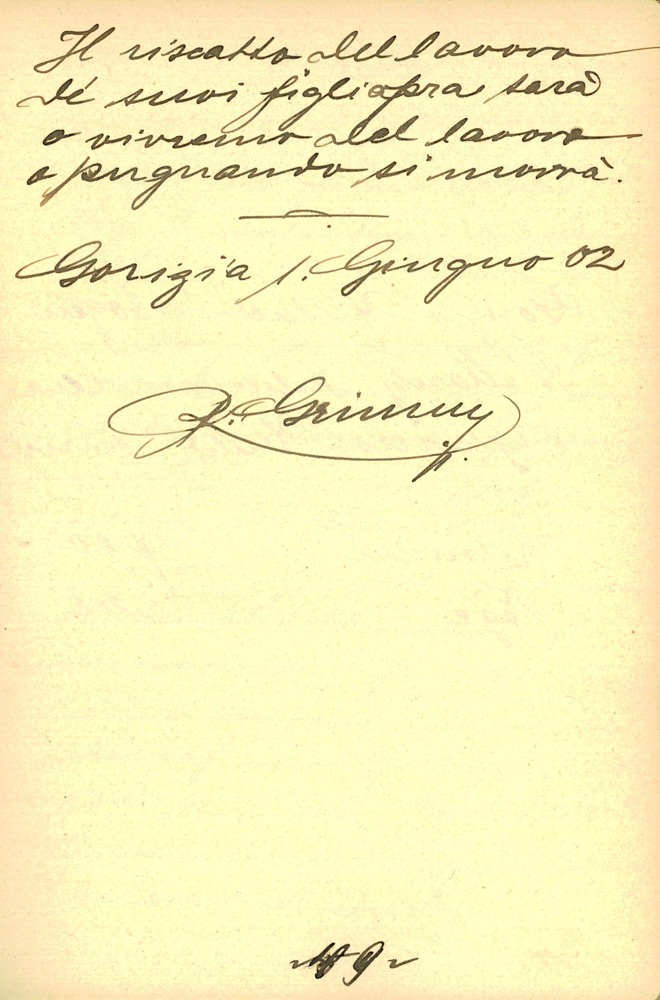 Il riscatto del lavoro
de' suoi figli opra sarà
o vivremo del lavoro
o pugnando si morrà.
Gorizia 1. Giugno 02